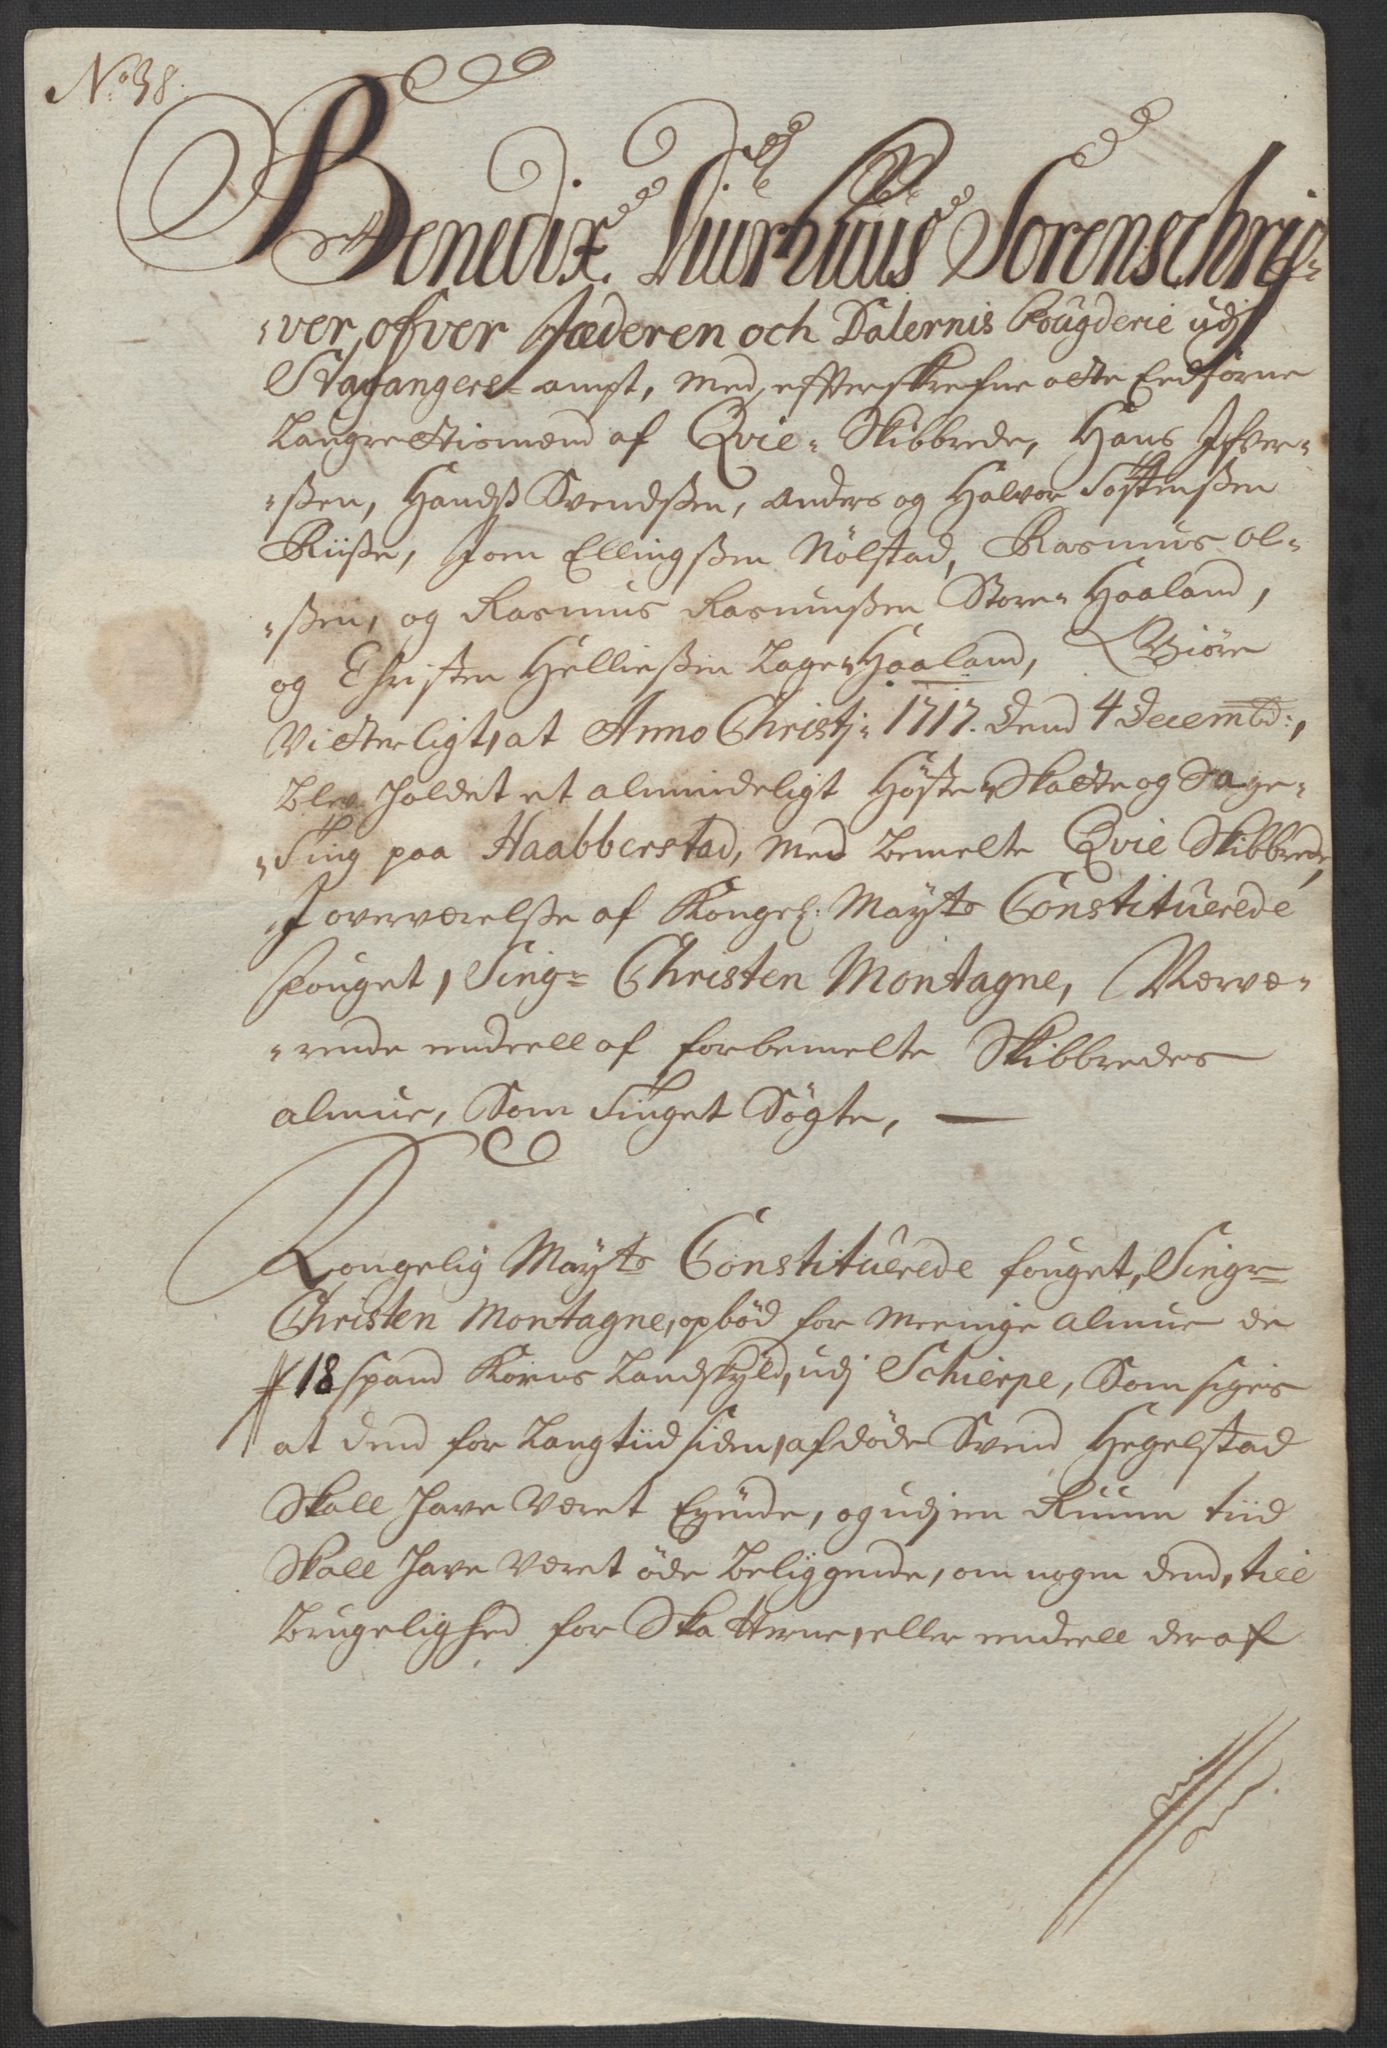 No 38.
Benedix Diurhuus Sorenschrif-
-ver, ofver Jæderen och Dalernis Fougderie udj
Stavangers ampt, med effterskrefne otte Eedsorne
Laugrettismænd af Qvie- Skibbrede, Hans Ifver-
-ßen, Handß Svendßen, Anders og Halvor Tostenßen
Riiße, Joen Ellingßen Nølstad, Rasmus Ol-
-ßen, og Rasmus Rasmusßen Store- Haaland,
og Christen Helließen Lage- Haaland, Giøre
Vitterligt, at Anno Christj- 1717. dend 4 Decembr:,
blev holdet et almindeligt Høste- Skatte og Sage-
-Ting paa Haabberstad, med bemelte Qvie Skibbrede,
I overværelße af Kongel: Mayts Constituerede
fouget, Sing- Christen Montagne, Nærvæ-
-rende endeell af forbemelte Skibbredes
almue, Som Tinget Søgte,
Kongelig Mayts Constituerede fouget, Singr
Christen Montagne, opbød for meenige almue de
18 spand Korns Landskyld, udj Schierpe, Som siges
at dend for Lang tiid siden, afdøde Svend Hegelstad
Skall have Været Ejende, og udj en Ruum tiid
Skall have Været øde beliggende, om nogen dend, till
brugelighed for Skatterne, eller endeell deraf